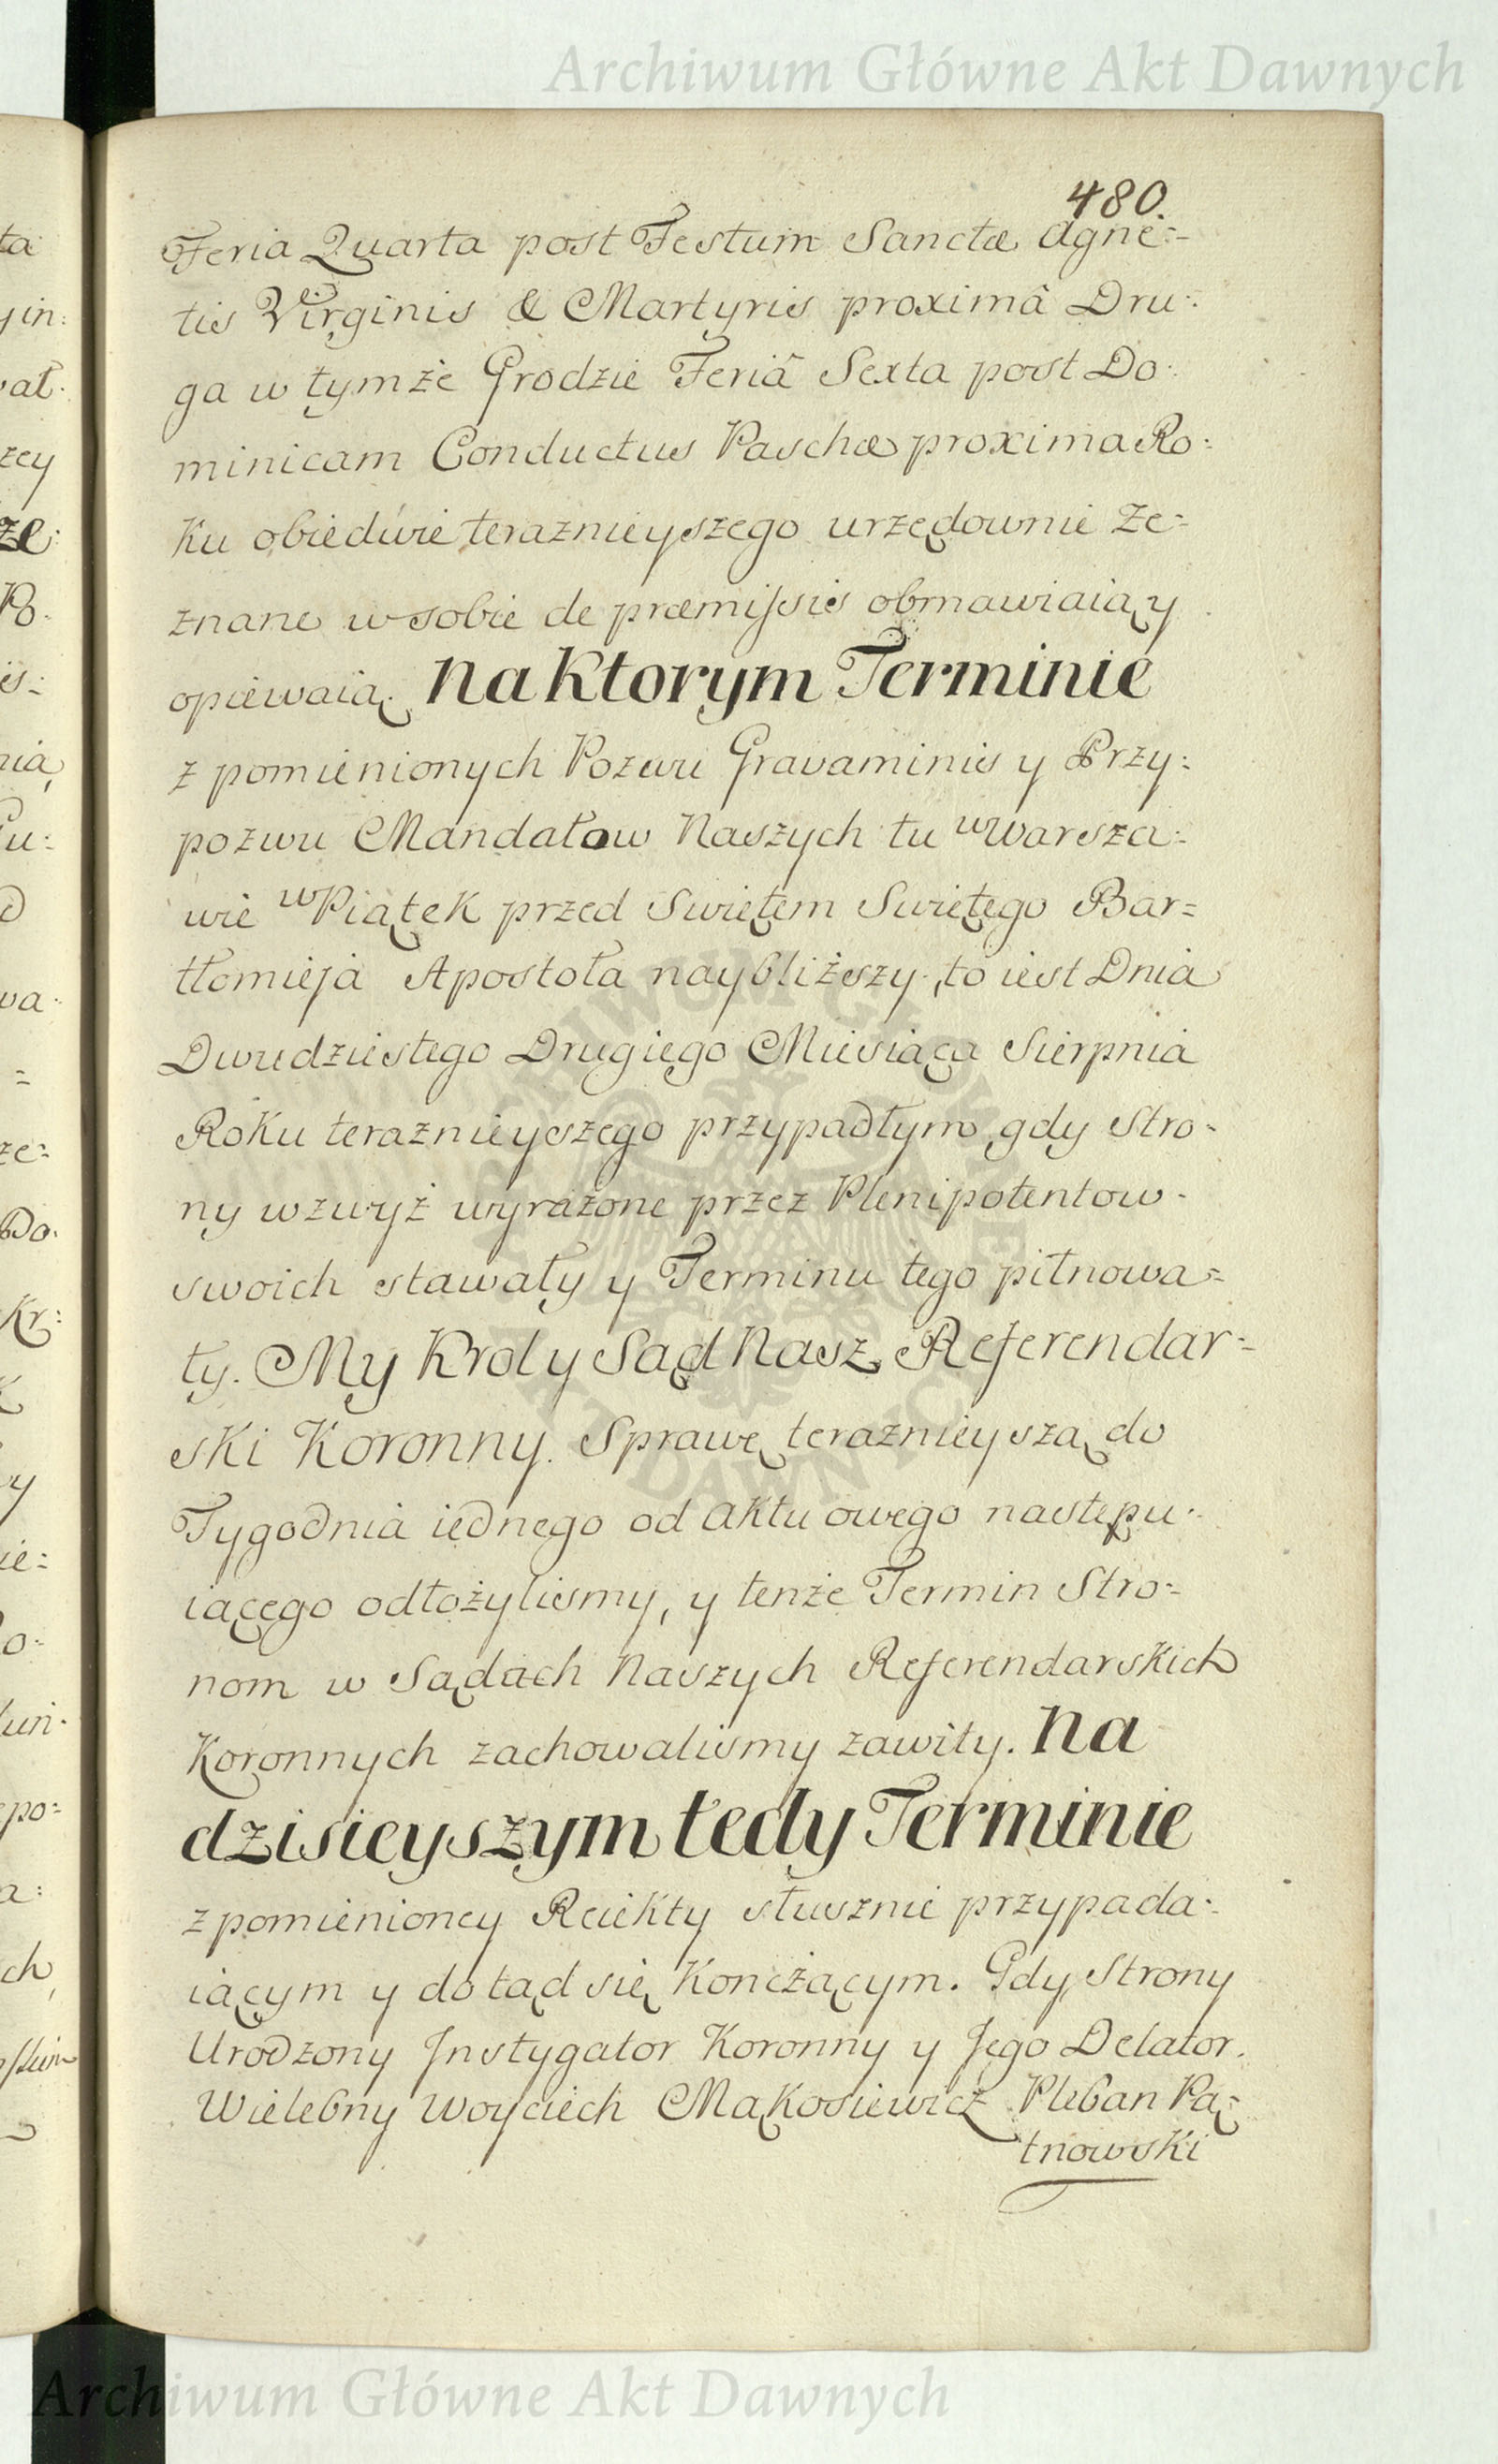 Archiwum Główne Akt Dawnych
480.
Feria Quarta post Festum Sanctæ Agne=
tis Virginis & Martyris proximâ Dru:
ga w tymże Grodzie Feriâ Sexta post Do:
minicam Conductus Paschæ proxima Ro:
ku obiedwie teraznieyszego urzędownie Ze=
znane w sobie de præmissis obmawiaią y
opiewaią. Na Ktorym Terminie
z pomienionych Pozwu Gravaminis y Przy:
pozwu Mandatow Naszych tu w Warsza:
wie w Piątek przed Swiętem Swiętego Bar=
tłomieja Apostoła naybliższy, to iest Dnia
Dwudziestego Drugiego Miesiąca Sierpnia
Roku teraznieyszego przypadłym gdy Stro-
ny wzwyż wyrażone przez Plenipotentow
swoich stawały y Terminu tego pilnowa=
ły. My Krol y Sąd Nasz Referendar-
ski Koronny. Sprawę teraznieyszą do
Tygodnia iednego od Aktu owego następu:
iącego odłożylismy, y tenże Termin Stro=
nom w Sądach Naszych Referendarskich
Koronnych zachowalismy zawity. Na
dzisieyszym tedy Terminie
z pomienioney Reiekty słusznie przypada:
iącym y dotąd się Konczącym. Gdy Strony
Urodzony Instygator Koronny y Jego Delator.
Wielebny Woyciech Mąkosiewicz Pleban Pą=
tnowski
Archiwum Główne Akt Dawnych